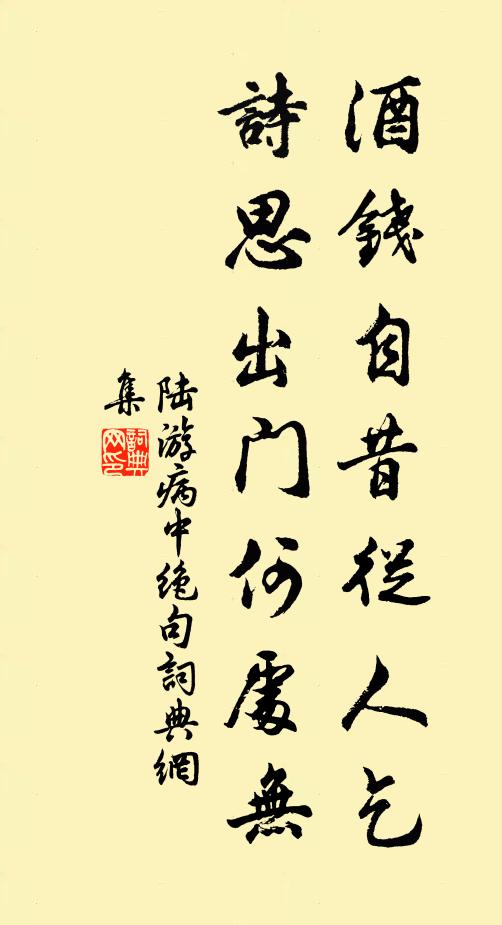 酒錢自昔從人乞
詩思出門何處無
陆游病中绝句詞典網
集
詞典网印